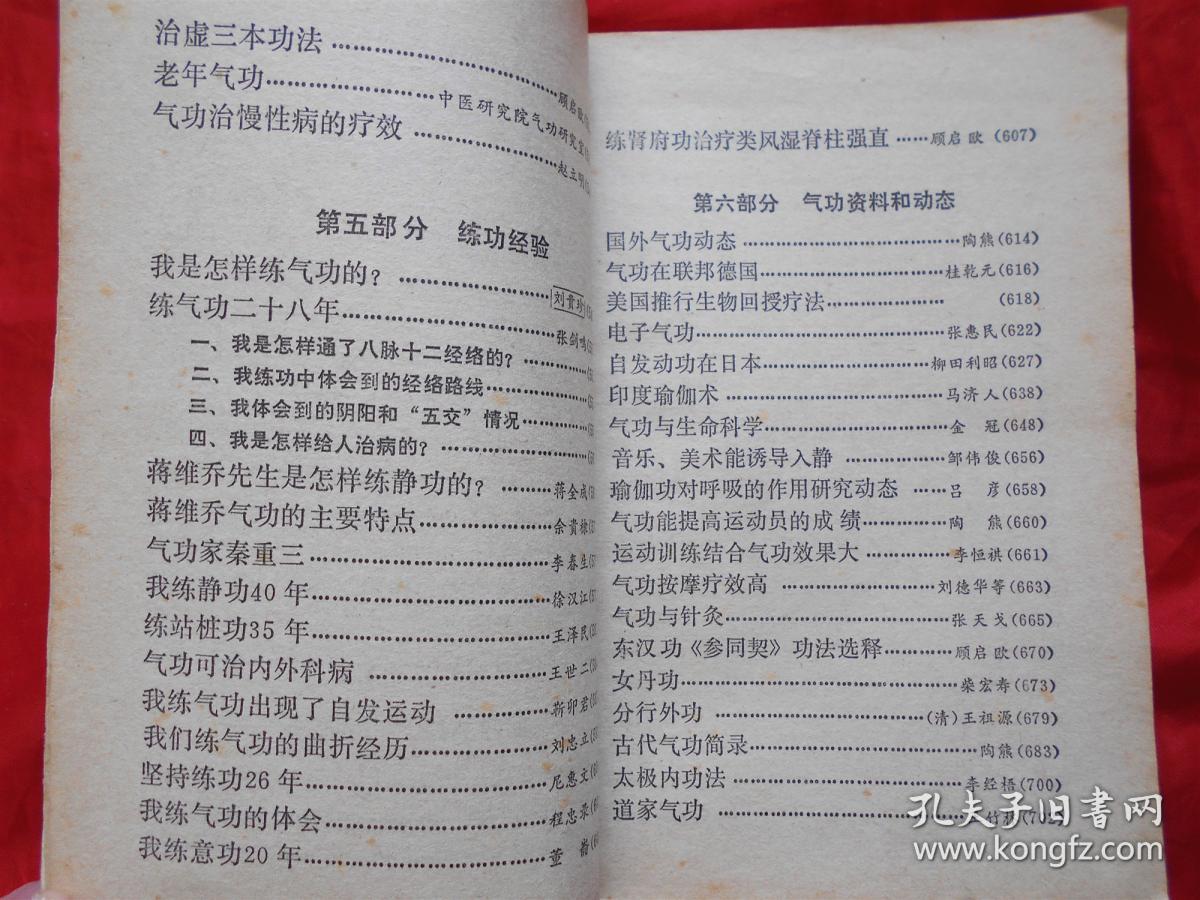 治虚三本功法……………………顾启欧
老年气功……………中医研究院气功研究室
气功治慢性病的疗效……………赵立明
第五部分 练功经验
我是怎样练气功的？……………刘贵珍
练气功二十八年……………………张剑鸣
一、我是怎样通了八脉十二经络的？…………
二、我练功中体会到的经络路线……………
三、我体会到的阴阳和“五交”情况…………
四、我是怎样给人治病的？……………
蒋维乔先生是怎样练静功的？………蒋全成
蒋维乔气功的主要特点……………余贵棣
气功家秦重三……………………李春生
我练静功40年……………………徐汉江
练站桩功35年……………………王泽民
气功可治内外科病………………王世二
我练气功出现了自发运动…………靳卯君
我们练气功的曲折经历……………刘忠立
坚持练功26年……………………尼惠文
我练气功的体会…………………程忠录
我练意功20年……………………董
练肾府功治疗类风湿脊柱强直……顾启欧(607)
第六部分 气功资料和动态
国外气功动态……………………陶熊(614)
气功在联邦德国…………………桂乾元(616)
美国推行生物回授疗法…………… (618)
电子气功…………………………张惠民(622)
自发动功在日本…………………柳田利昭(627)
印度瑜伽术………………………马济人(638)
气功与生命科学…………………金 冠(648)
音乐、美术能诱导入静……………邹伟俊(656)
瑜伽功对呼吸的作用研究动态……吕 彦(658)
气功能提高运动员的成绩…………陶 熊(660)
运动训练结合气功效果大…………李恒祺(661)
气功按摩疗效高…………………刘德华等(663)
气功与针灸………………………张天戈(665)
东汉功《参同契》功法选释………顾启欧(670)
女丹功……………………………柴宏寿(673)
分行外功…………………(清)王祖源(679)
古代气功简录……………………陶熊(683)
太极内功法………………………李经梧(700)
道家气功…………………………竹(702)
孔夫子旧书网
www.kongfz.com